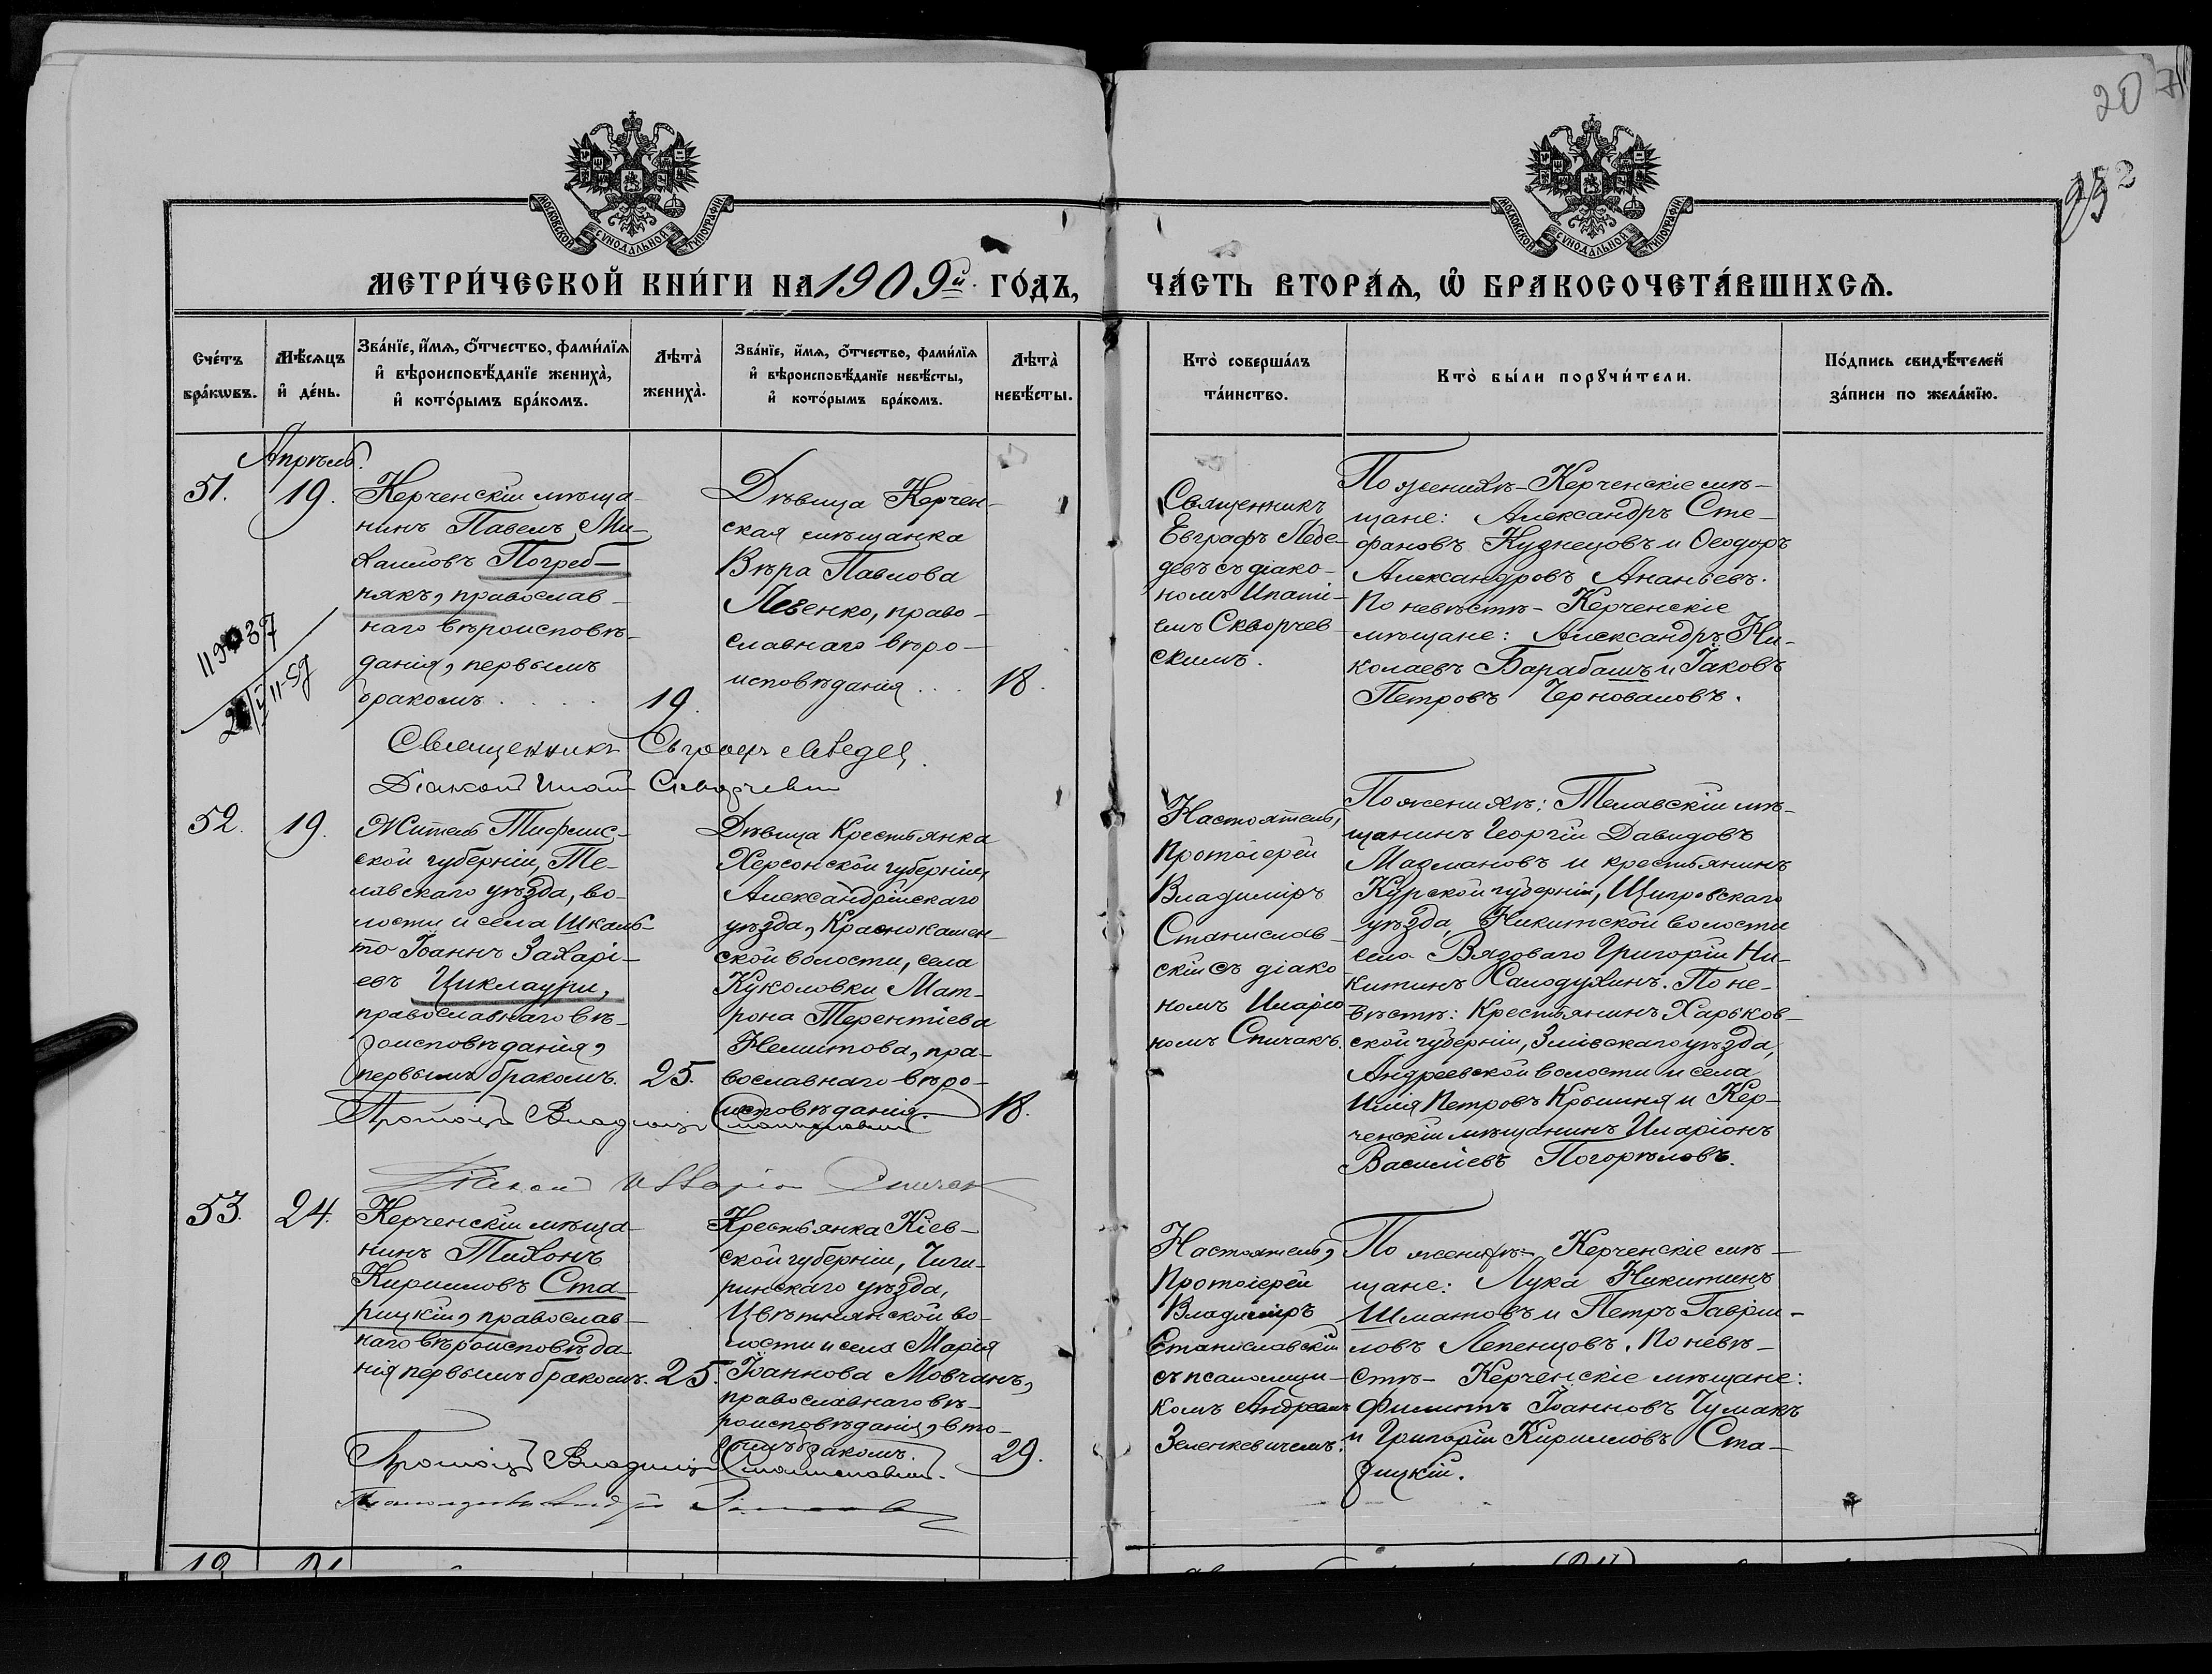 207
МОСКОВСКОЙ СѴНОДАЛЬНОЙ ТИПОГРАФІИ
МОСКОВСКОЙ СѴНОДАЛЬНОЙ ТИПОГРАФІИ
МЕТРИ́ЧЕСКОЙ КНИ́ГИ НА 1909й. ГО́ДЪ,
ЧА́СТЬ ВТОРА́Ѧ, Ѡ҆ БРАКОСОЧЕТА́ВШИХСѦ.
Сче́тъ
бра́кѡвъ.
Мѣ́сѧцъ
и҆ де́нь.
Зва́нїе, и҆́мѧ, ѻ҆́тчество, фами́лїѧ
и҆ вѣроисповѣ́данїе жениха̀,
и҆ кото́рымъ бра́комъ.
Лѣта̀
жениха̀.
Зва́нїе, и҆́мѧ, ѻ҆́тчество, фами́лїѧ
и҆ вѣроисповѣ́данїе невѣ́сты,
и҆ кото́рымъ бра́комъ.
Лѣта̀
невѣ́сты.
Кто̀ соверша́лъ
та́инство.
Кто̀ бы́ли порꙋчи́тели.
По́дпись свидѣ́телей
за́писи по жела́нїю.
Апрѣль.
51.
19.
Керченскій мѣща-
нинъ Павелъ Ми-
хаиловъ Погреб-
някъ, православ-
наго вѣроисповѣ-
данія, первымъ
бракомъ
19.
Дѣвица Керчен-
ская мѣщанка
Вѣра Павлова
Левенко, право-
славнаго вѣро-
исповѣданія
18.
Священникъ
Евграфъ Лебе-
девъ съ діако-
номъ Ипаті-
емъ Скворчев-
скимъ.
По женихѣ - Керченскіе мѣ-
щане: Александръ Сте-
фановъ Кузнецовъ и Ѳеодоръ
Александровъ Ананьевъ.
По невѣстѣ - Керченскіе
мѣщане: Александръ Ни-
колаевъ Барабашъ и Іаковъ
Петровъ Черноваловъ.
Священникъ Евграфъ Лебедев
Діакон Ипат
52.
19.
Житель Тифлис-
ской губерніи, Те-
лавскаго уѣзда, во-
лости и села Шкаль-
то Іоаннъ Захарі-
евъ Циклаури,
православнаго вѣ-
роисповѣданія,
первымъ бракомъ.
25.
Дѣвица Крестьянка
Херсонской губерніи,
Александрійскаго
уѣзда, Краснокамен-
ской волости, села
Куколовки Мат-
рона Терентіева
Немитова, пра-
вославнаго вѣро-
исповѣданія.
18.
Настоятель,
Протоіерей
Владиміръ
Станислав-
скій съ діако-
номъ Иларіо-
номъ Спичакъ.
По женихѣ: Телавскій мѣ-
щанинъ Георгій Давидовъ
Мазмановъ и крестьянинъ
Курской губерніи, Щигровскаго
уѣзда, Никитской волости
села Вязоваго Григорій Ни-
китинъ Салодухинъ. По не-
вѣстѣ: Крестьянинъ Харьков-
ской губерніи, Зміевскаго уѣзда,
Андреевской волости и села
Илія Петровъ Крыминя и Кер-
ченскій мѣщанинъ Иларіонъ
Василіевъ Погорѣловъ.
Протоіер Владимір Станиславскій
Діакон Илларіон Спичак
53.
24.
Керченскій мѣща-
нинъ Тихонъ
Кирилловъ Ста-
рицкій, православ-
наго вѣроисповѣда-
нія первымъ бракомъ.
25.
Крестьянка Кіев-
ской губерніи, Чиги-
ринскаго уѣзда,
Цвѣтнянской во-
лости и села Марія
Іоаннова Мовчанъ,
православнаго вѣ-
роисповѣданія, вто-
рымъ бракомъ.
29.
Настоятель,
Протоіерей
Владиміръ
Станиславскій
съ псаломщи-
комъ Андреемъ
Зеленкевичемъ.
По женихѣ - Керченскіе мѣ-
щане: Лука Никитинъ
Шматовъ и Петръ Гавріи-
ловъ Лепенцовъ. По невѣ-
стѣ - Керченскіе мѣщане:
Филиппъ Іоанновъ Чумакъ
и Григорій Кирилловъ Ста-
рицкій.
Протоіер Владимір Станиславскій.